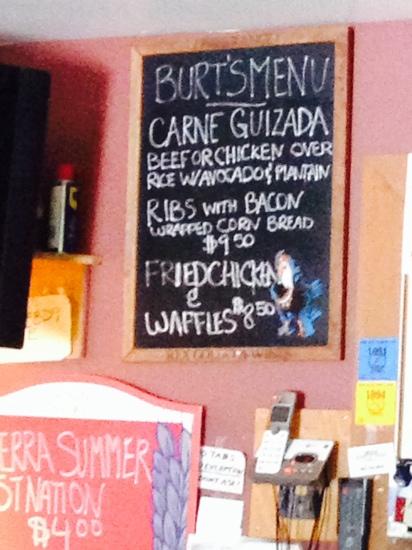 BURT'S MENU
CARNE GUIZADA
BEEF OR CHICKEN OVER
RICE W/AVOCADO & PLANTAIN
RIBS WITH BACON
WRAPPED CORN BREAD
$9.50
FRIED CHICKEN
&
WAFFLES $8.50
ERRA SUMMER
ST NATION
$4.00
TABS
1994